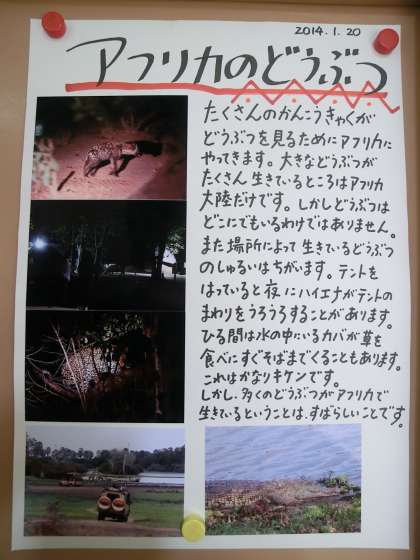 2014.1.20
アフリカのどうぶつ
たくさんのかんこうきゃくが
どうぶつを見るためにアフリカに
やってきます。大きなどうぶつが
たくさん生きているところはアフリカ
大陸だけです。しかしどうぶつは
どこにでもいるわけではありません。
また場所によって生きているどうぶつ
のしゅるいはちがいます。テントを
はっていると夜にハイエナがテントの
まわりをうろうろすることがあります。
ひる間は水の中にいるカバが草を
食べにすぐそばまでくることもあります。
これはかなりキケンです。
しかし、多くのどうぶつがアフリカで
生きているということは、すばらしいことです。